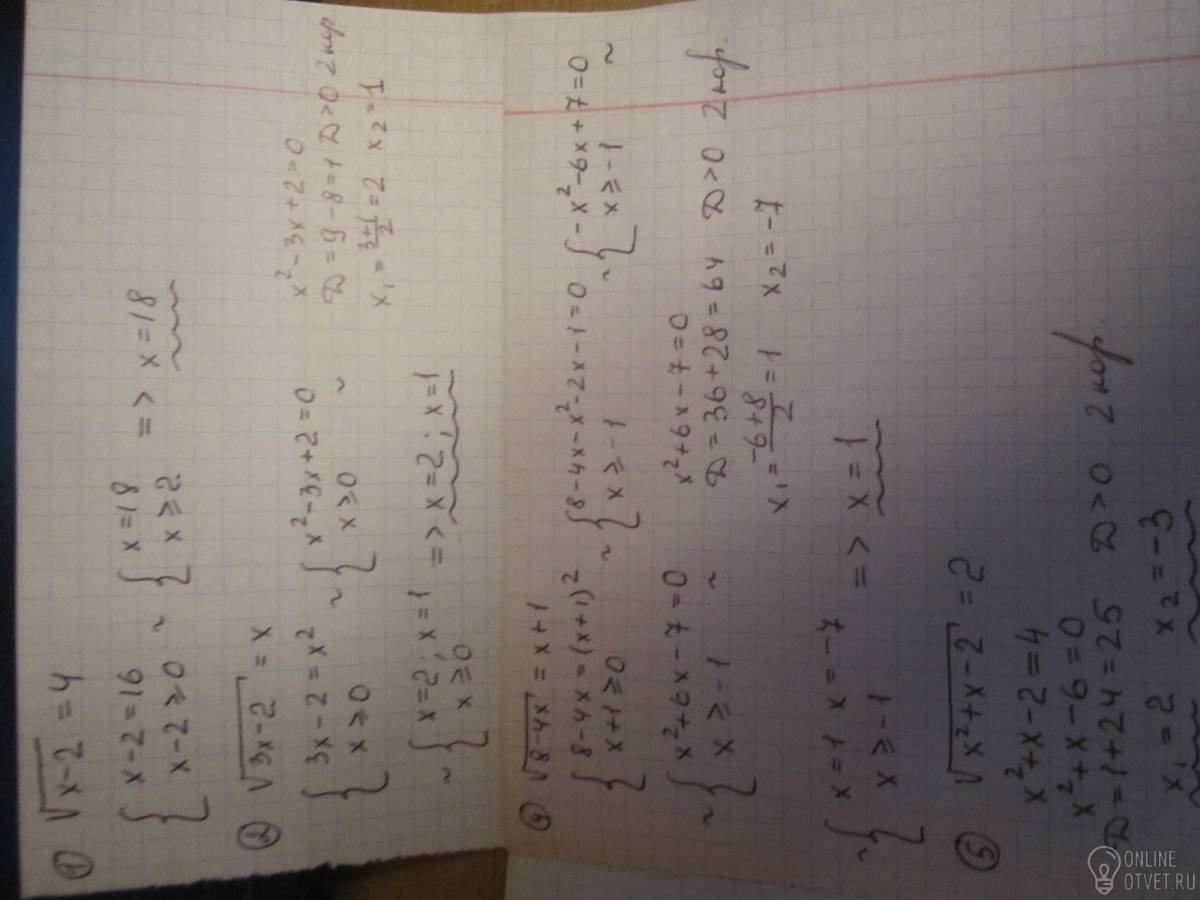 ① √x-2 = 4
{ x-2=16
x-2≥0 ~ { x=18
x≥2 => x=18
② √3x-2 = x
{ 3x-2=x²
x≥0 ~ { x²-3x+2=0
x≥0 ~
x²-3x+2=0
D=9-8=1 D>0 2 кор
x₁=3+1/2=2 x₂=1
~ { x=2; x=1
x≥0 => x=2; x=1
④ √8-4x = x+1
{ 8-4x=(x+1)²
x+1≥0 ~ { 8-4x-x²-2x-1=0
x≥-1 ~ { -x²-6x+7=0
x≥-1 ~
~ { x²+6x-7=0
x≥-1 ~
x²+6x-7=0
D=36+28=64 D>0 2 кор.
x₁=-6+8/2=1 x₂=-7
~ { x=1 x=-7
x≥-1 => x=1
⑤ √x²+x-2 = 2
x²+x-2=4
x²+x-6=0
D=1+24=25 D>0 2 кор.
x₁=2 x₂=-3
ONLINE
OTVET.RU